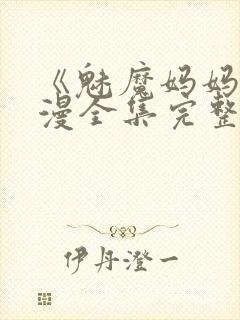 《魅魔妈妈
漫全集完整
伊丹澄一